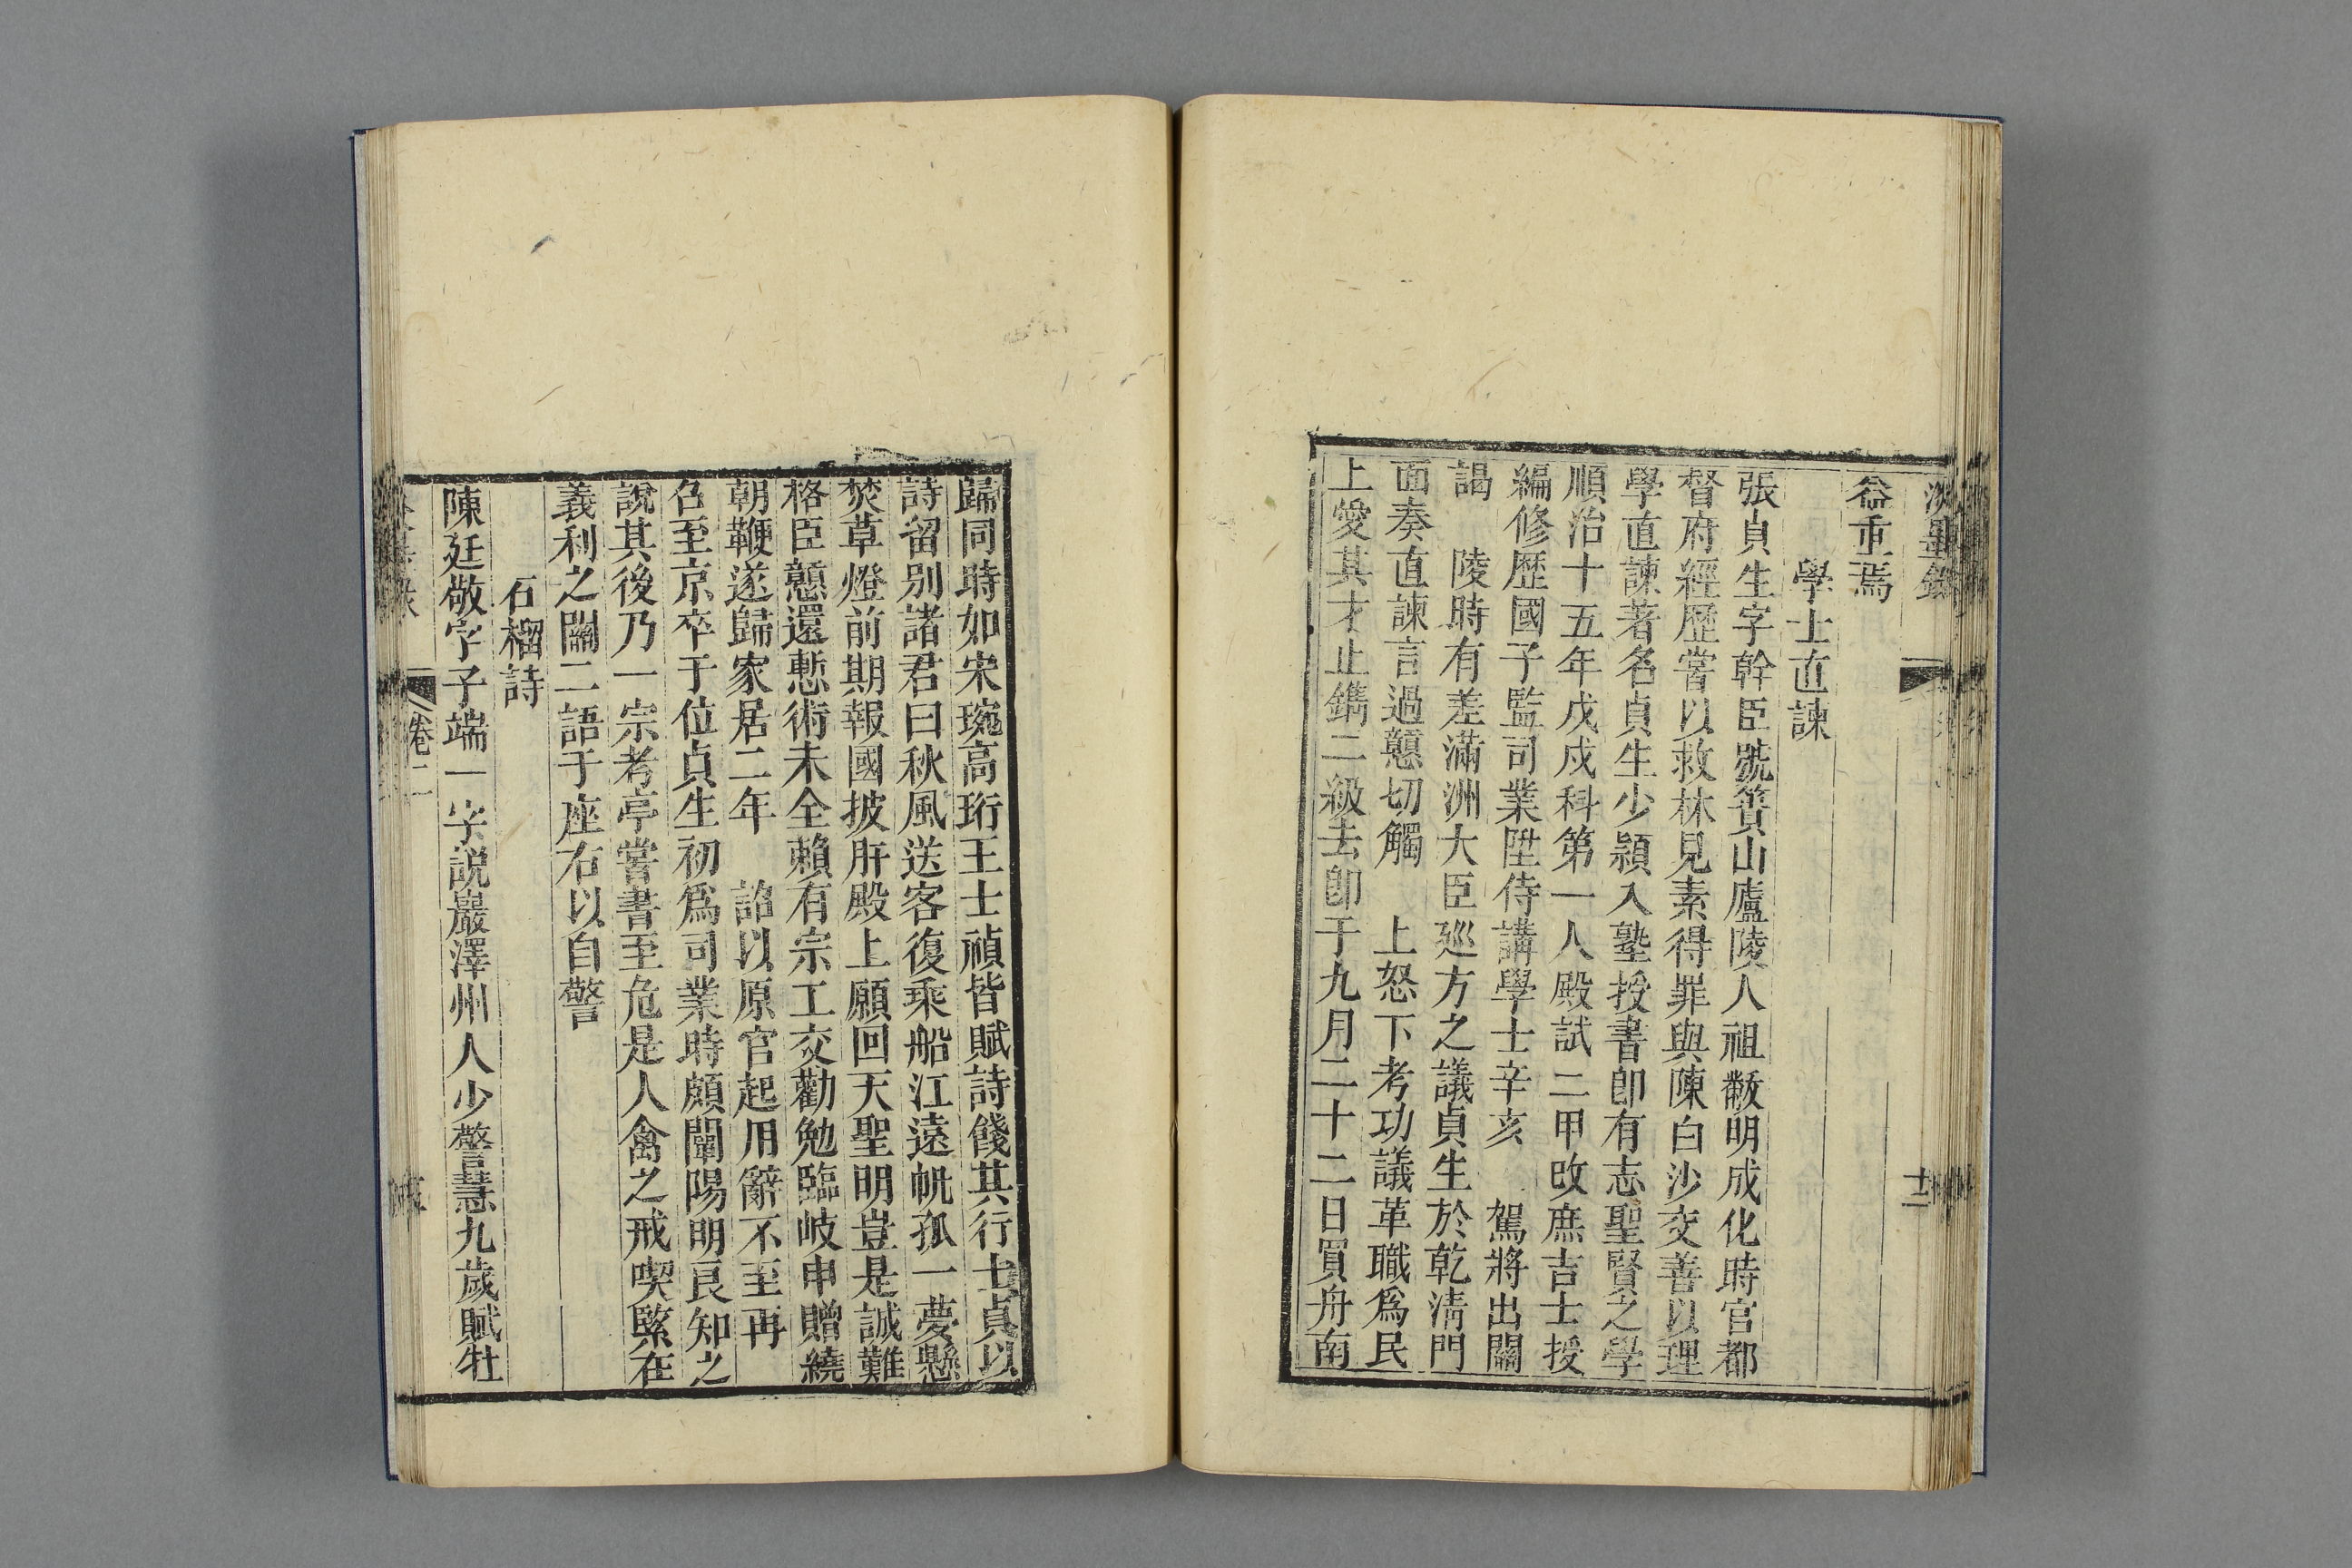 淡墨錄
十二
益重焉
學士直諫
張貞生字幹臣號簣山廬陵人祖敝明成化時官都
督府經歷嘗以救林見素得罪與陳白沙交善以理
學直諫著名貞生少穎入塾授書卽有志聖賢之學
順治十五年戊戌科第一人殿試二甲改庶吉士授
編修歷國子監司業陞侍講學士辛亥　駕將出關
謁　陵時有差滿洲大臣廵方之議貞生於乾清門
面奏直諫言過戇切觸　上怒下考功議革職爲民
上愛其才止鐫二級去卽于九月二十二日買舟南
歸同時如宋琬高珩王士禎皆賦詩餞其行士貞以
詩留別諸君曰秋風送客復乘船江遠帆孤一夢懸
焚草燈前期報國披肝殿上願回天聖明豈是誠難
格臣戇還慙術未全賴有宗工交勸勉臨岐申贈繞
朝鞭遂歸家居二年　詔以原官起用辭不至再
召至京卒于位貞生初爲司業時頗闡陽明良知之
說其後乃一宗考亭嘗書至危是人禽之戒喫緊在
義利之關二語于座右以自警
石榴詩
陳廷敬字子端一字説巖澤州人少警慧九歲賦牡
卷二